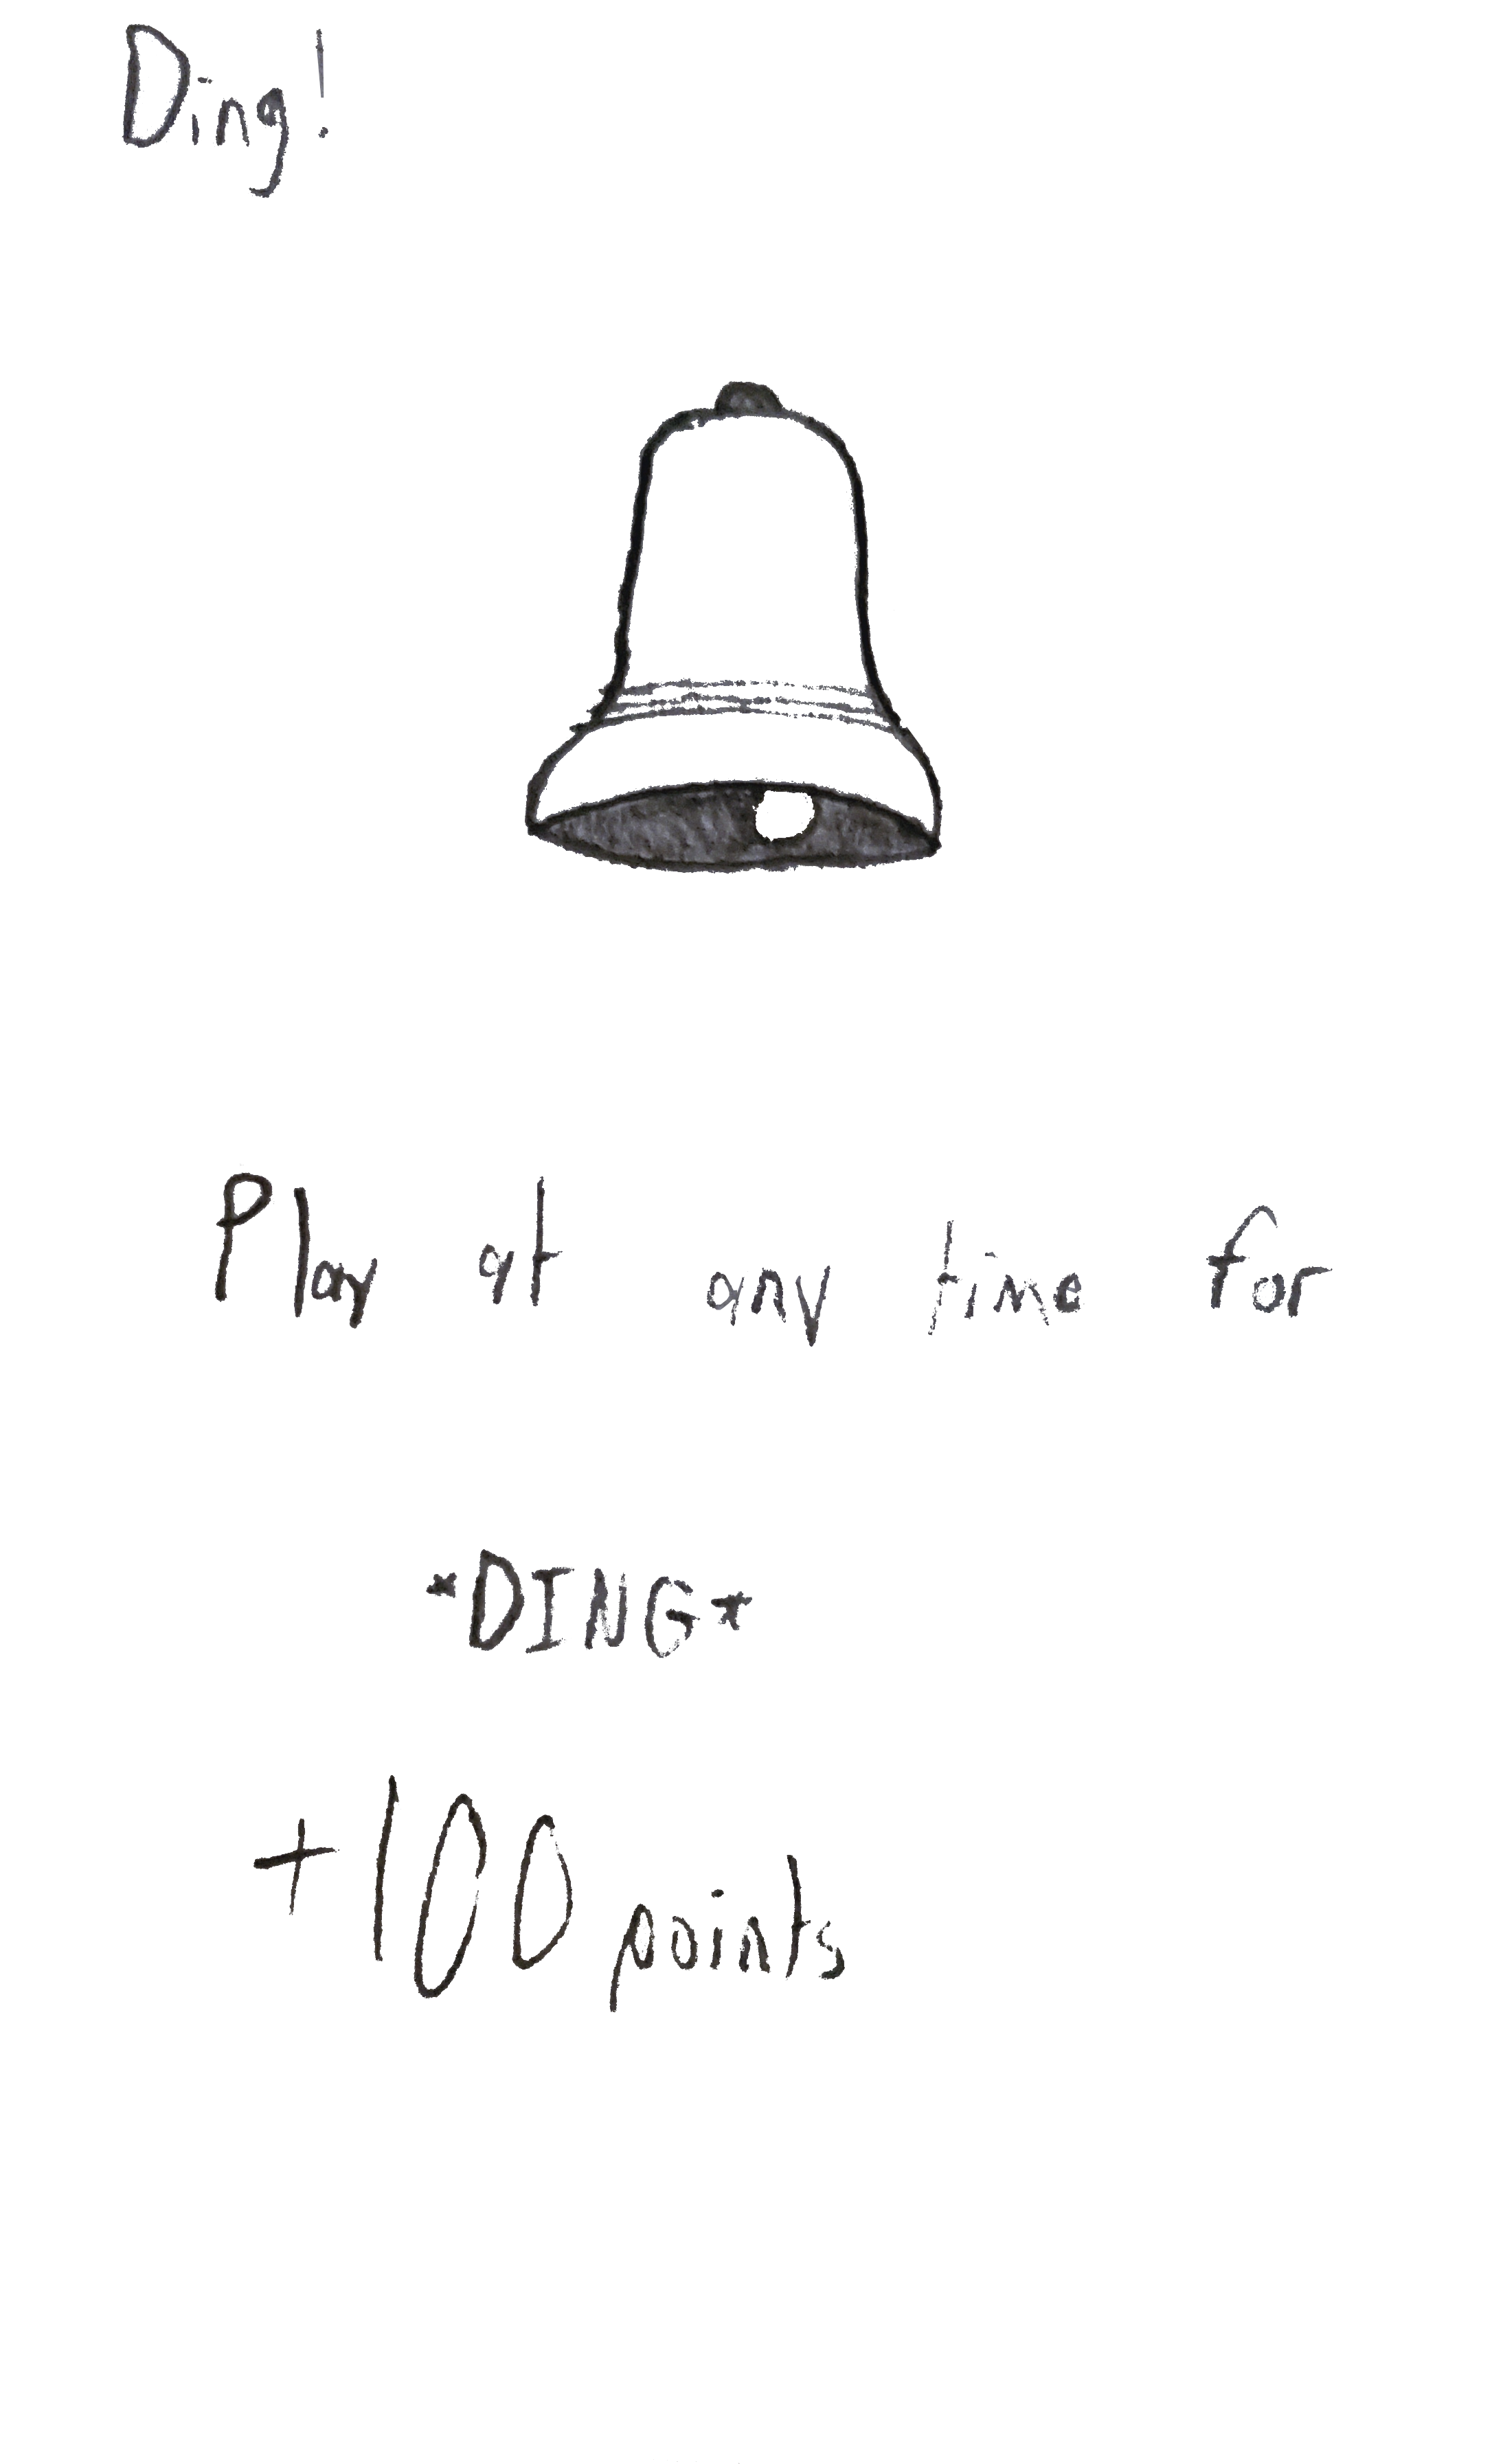 Ding!
Play at any time for
*DING*
+100 points